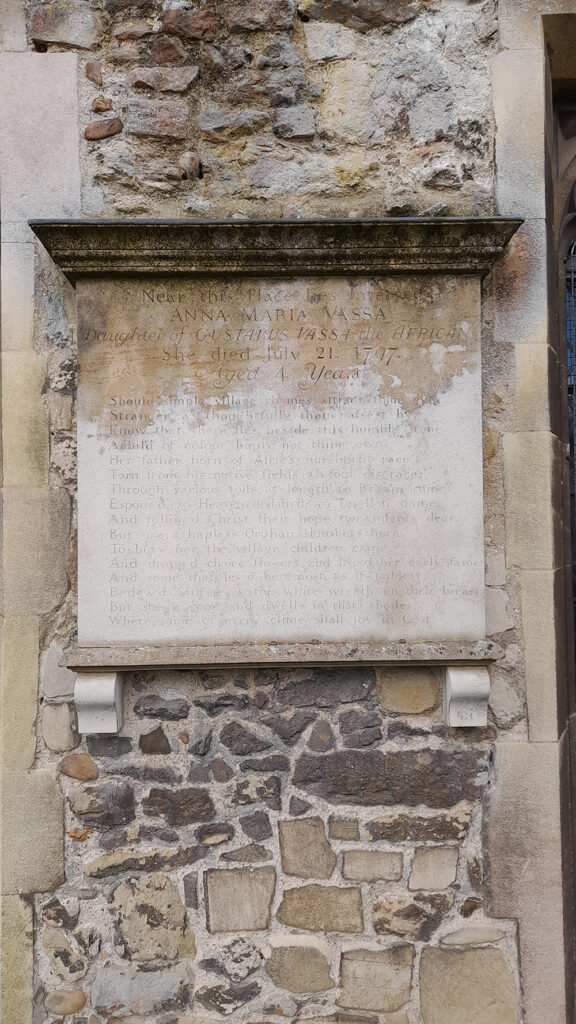 Near this Place lies Interr'd
ANNA MARIA VASSA
Daughter of GUSTAVUS VASSA the AFRICAN
She died July 21. 1797.
Aged 4 Years
Should simple village rhymes attract thine eye,
Stranger, as thoughtfully thou passest by,
Know that there lies beside this humble stone
A child of colour haply not thine own.
Her father born of Afric's sun-burnt race,
Torn from his native fields, ah foul disgrace;
Through various toils, at length to Britain came
Espous'd, so Heaven ordain'd, an English dame,
And follow'd Christ; their hope two infants dear.
But one, a hapless Orphan, slumbers here.
To bury her the village children came,
And dropp'd choice flowers, and lisp'd her early fame;
And some that lov'd her most, as if unblest,
Bedew'd with tears the white wreath on their breast;
But she is gone and dwells in that abode,
Where some of every clime shall joy in God.